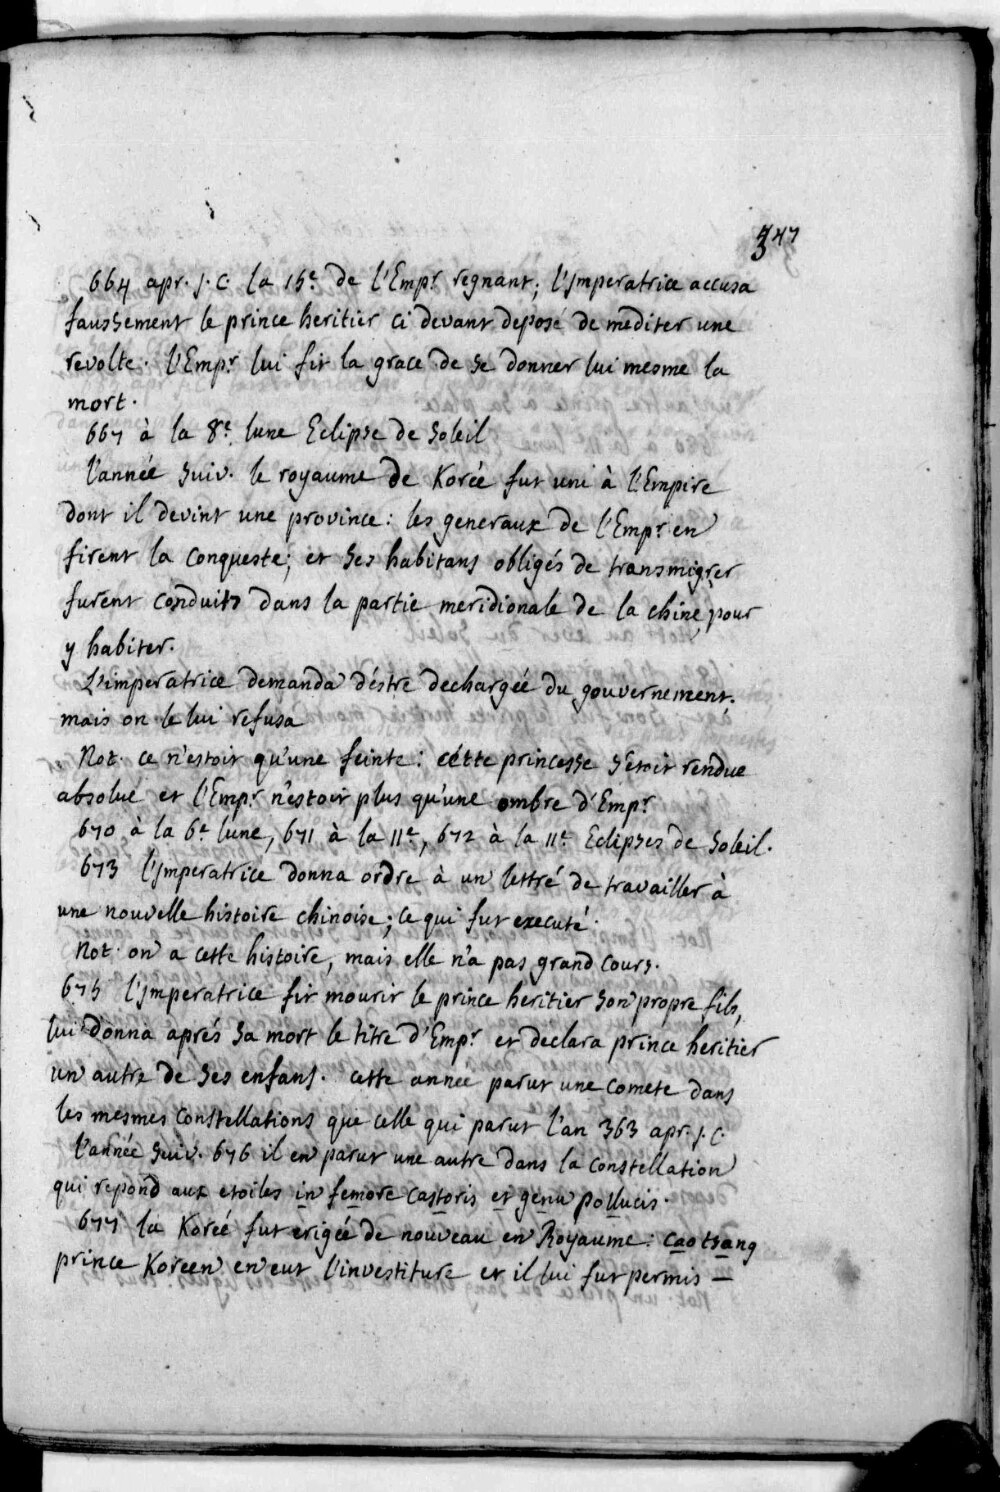 347
664 apr. j. c. la 15e de l'Empr regnant; l'jmperatrice accusa
faussement le prince heritier ci devant deposé de mediter une
revolte. l'Empr lui fit la grace de se donner lui mesme la
mort.
667 à la 8e lune Eclipse de Soleil
l'année suiv. le royaume de Korée fut uni à l'Empire
dont il devint une province: les generaux de l'Empr en
firent la conqueste; et ses habitans obligés de transmigrer
furent conduits dans la partie meridionale de la chine pour
y habiter.
L'imperatrice demanda d'estre dechargée du gouvernement.
mais on le lui refusa
Not. ce n'estoit qu'une feinte: cette princesse s'etoit rendue
absolue et l'Empr n'estoit plus qu'une ombre d'Empr
670 à la 6e lune, 671 à la 11e, 672 à la 11e Eclipses de Soleil.
673 l'jmperatrice donna ordre à un lettré de travailler à
une nouvelle histoire chinoise; ce qui fut executé.
Not. on a cette histoire, mais elle n'a pas grand cours.
675 l'jmperatrice fit mourir le prince heritier son propre fils,
lui donna aprés sa mort le titre d'Empr et declara prince heritier
un autre de ses enfans. cette annee parut une comete dans
les mesmes constellations que celle qui parut l'an 363 apr. j. c.
l'année suiv. 676 il en parut une autre dans la constellation
qui repond aux etoiles in femore castoris et genu pollucis.
677 la Koreé fut erigée de nouveau en Royaume: cao tsang
prince Koreen en eut l'investiture et il lui fut permis —